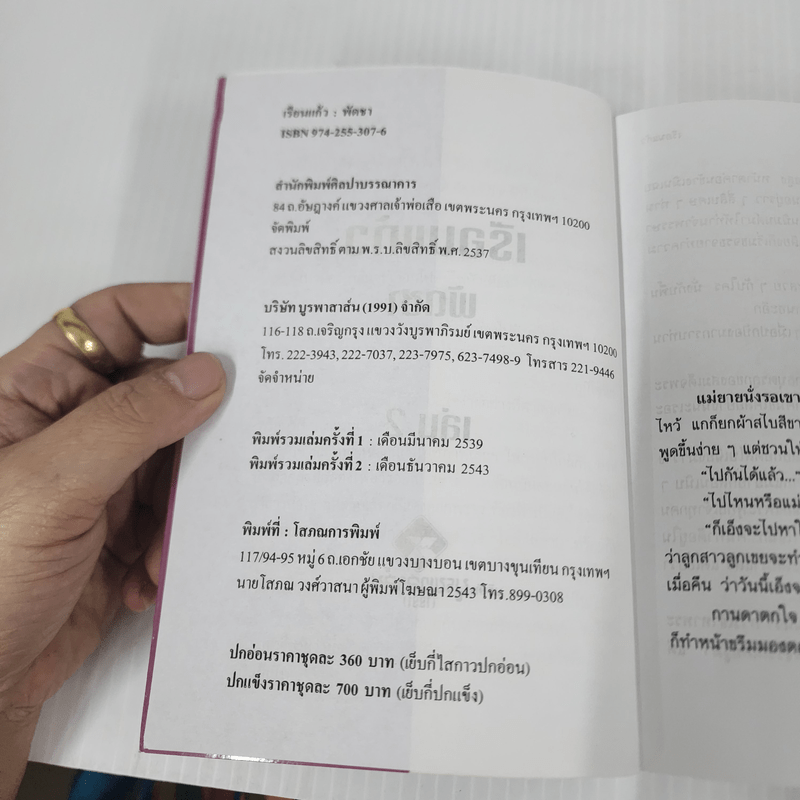 เรือนแก้ว : พัดชา
ISBN 974-255-307-6
สำนักพิมพ์ศิลปาบรรณาคาร
84 ถ.อัษฎางค์ แขวงศาลเจ้าพ่อเสือ เขตพระนคร กรุงเทพฯ 10200
จัดพิมพ์
สงวนลิขสิทธิ์ ตาม พ.ร.บ.ลิขสิทธิ์ พ.ศ. 2537
บริษัท บูรพาสาส์น (1991) จำกัด
116-118 ถ.เจริญกรุง แขวงวังบูรพาภิรมย์ เขตพระนคร กรุงเทพฯ 10200
โทร. 222-3943, 222-7037, 223-7975, 623-7498-9 โทรสาร 221-9446
จัดจำหน่าย
พิมพ์รวมเล่มครั้งที่ 1 : เดือนมีนาคม 2539
พิมพ์รวมเล่มครั้งที่ 2 : เดือนธันวาคม 2543
พิมพ์ที่ : โสภณการพิมพ์
117/94-95 หมู่ 6 ถ.เอกชัย แขวงบางบอน เขตบางขุนเทียน กรุงเทพฯ
นายโสภณ วงศ์วาสนา ผู้พิมพ์โฆษณา 2543 โทร.899-0308
ปกอ่อนราคาชุดละ 360 บาท (เย็บกี่ไสกาวปกอ่อน)
ปกแข็งราคาชุดละ 700 บาท (เย็บกี่ปกแข็ง)
แม่ยายนั่งรอเขา
ไหว้ แกก็ยกผ้าสไบสีขา
พูดขึ้นง่าย ๆ แต่ชวนให้
“ไปกันได้แล้ว...”
“ไปไหนหรือแม่
“ก็เอ็งจะไปหาใ
ว่าลูกสาวลูกเขยจะทำ
เมื่อคืน ว่าวันนี้เอ็งจ
กานดาตกใจ
ก็ทำหน้าขรึมมองต